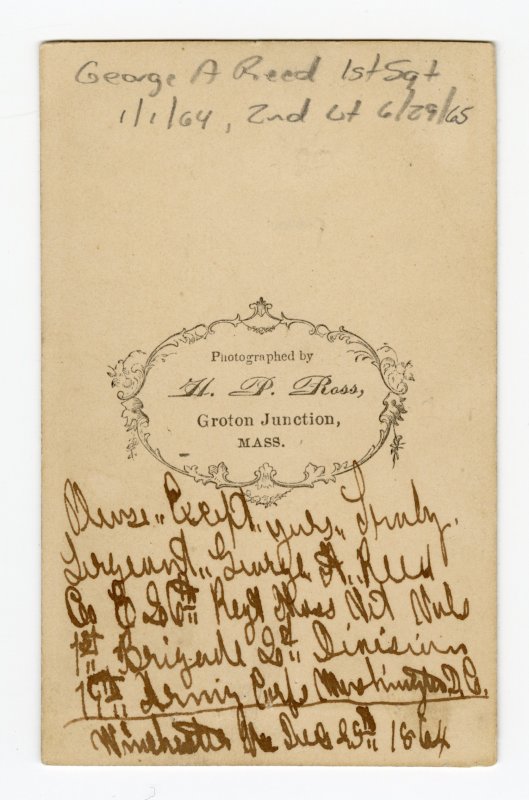 George A Reed 1st Sgt
1/1/64, 2nd Lt 6/29/65
Photographed by
H. P. Ross,
Groton Junction,
MASS.
Please Except yours Truly.
Sergeant George A. Reed
Co E 26th Regt Mass Vet Vols
1st Brigade 2d Division
19th Army Corps Washington D.C.
Winchester Va Dec 25th 1864